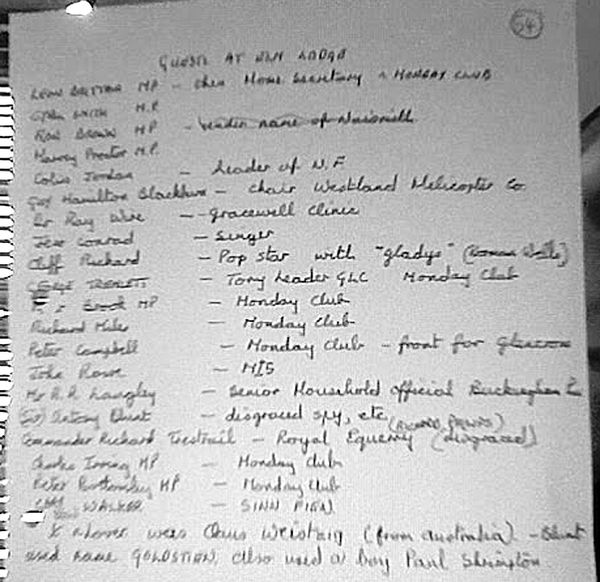 54
GUESTS AT ELM LODGE
LEON BRITTAN MP - then Home Secretary & MONDAY CLUB
CYRIL SMITH M.P.
Ron Brown MP - under name of Naismith
Harvey Proctor M.P.
Colin Jordan - Leader of N.F
Guy Hamilton Blackburn - Chair Westland Helicopter Co.
Dr Ray Wire - Gracewell Clinic
Jess Conrad - Singer
Cliff Richard - Pop star with "gladys"
GEORGE TREMLETT - Tory Leader GLC Monday Club
Brook MP - Monday Club
Richard Miles - Monday Club
Peter Campbell - Monday Club - front for
John Rowe - MI5
Mr R.A Langley - Senior Household official Buckingham
(Sir) Antony Blunt - disgraced spy, etc
Commander Richard Trestrail - Royal Equerry (disgraced)
Charles Irving MP - Monday Club
Peter Bottomley MP - Monday Club
WALKER - SINN FIEN
(from Australia) - Blunt
used name GOLDSTIEN, also used a boy Paul